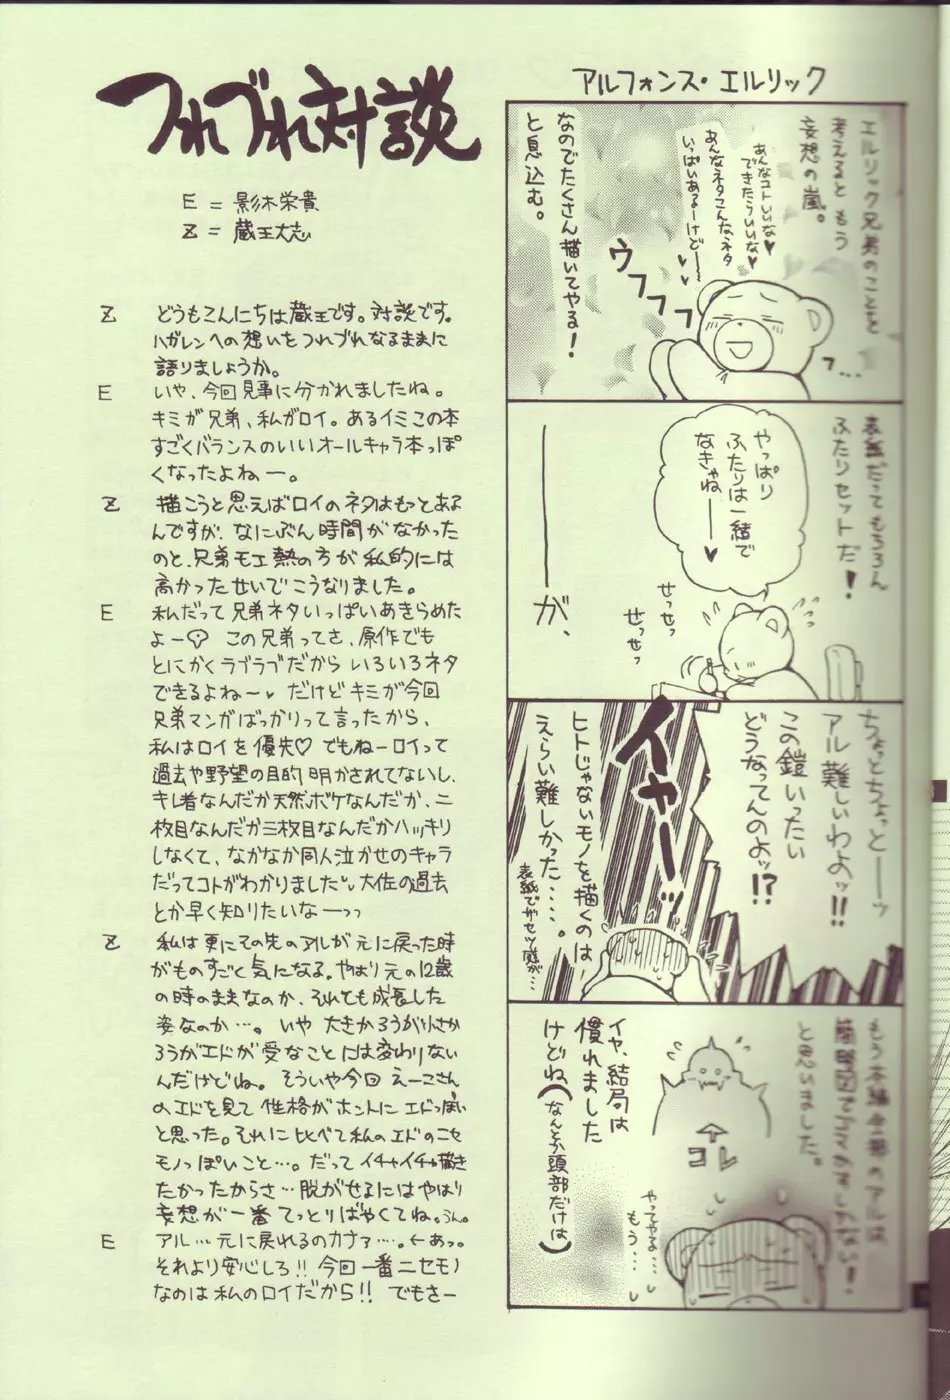 つれづれ対談
E = 影木栄貴
Z = 蔵王大志
Z どうもこんにちは蔵王です。対談です。
ハガレンへの想いをつれづれなるままに
語りましょうか。
E いや、今回見事に分かれましたね。
キミが兄弟、私がロイ。あるイミこの本
すごくバランスのいいオールキャラ本っぽ
くなったよねー。
Z 描こうと思えばロイのネタはもっとあるよ
んですが、なにぶん時間がなかった
のと、兄弟モエ熱の方が私的には
高かったせいでこうなりました。
E 私だって兄弟ネタいっぱいあきらめた
よー この兄弟ってさ、原作でも
とにかくラブラブだからいろいろネタ
できるよねー♥ だけどキミが今回
兄弟マンガばっかりって言ったから、
私はロイを優先♡ でもねーロイって
過去や野望の目的明かされてないし、
キレ者なんだか天然ボケなんだか、二
枚目なんだか三枚目なんだかハッキリ
しなくて、なかなか同人泣かせのキャラ
だってコトがわかりました。大佐の過去
とか早く知りたいなーっっ
Z 私は更にその先のアルが元に戻った時
がものすごく気になる。やはり元の12歳
の時のままなのか、それとも成長した
姿なのか…。いや大きかろうが小さか
ろうがエドが受なことには変わりない
んだけどね。そういや今回えーこさん
のエドを見て性格がホントにエドっぽい
と思った。それに比べて私のエドのニセ
モノっぽいこと…。だってイチャイチャ描き
たかったからさ…脱がせるにはやはり
妄想が一番てっとりばやくてね。うん。
E アル…元に戻れるのカナァ…。←あっ。
それより安心しろ!!今回一番ニセモノ
なのは私のロイだから!! でもさー
アルフォンス・エルリック
エルリック兄弟のことを
考えるともう
妄想の嵐。
あんなコトいいな♥
できたらいいな♥
あんなネタこんなネタ
いっぱいあるーけどー
ウフフフフ
フ…
なのでたくさん描いてやる!
と息込む。
表紙だってもちろん
ふたりセットだ!
やっぱり
ふたりは一緒で
なきゃねー♥
せっせっ
せっせっ
―が、
ちょっとちょっとーッ
アル難しいわよッ!!
この鎧いったい
どうなってんのよッ!?
イヤーーッ
ヒトじゃないモノを描くのは
えらい難しかった……。
もう本編全部のアルは
簡略図でゴマかすしかない!
と思いました。
コレ
イヤ、結局は
慣れました
けどね(なんとか頭部だけは)
やってやる…
もう…